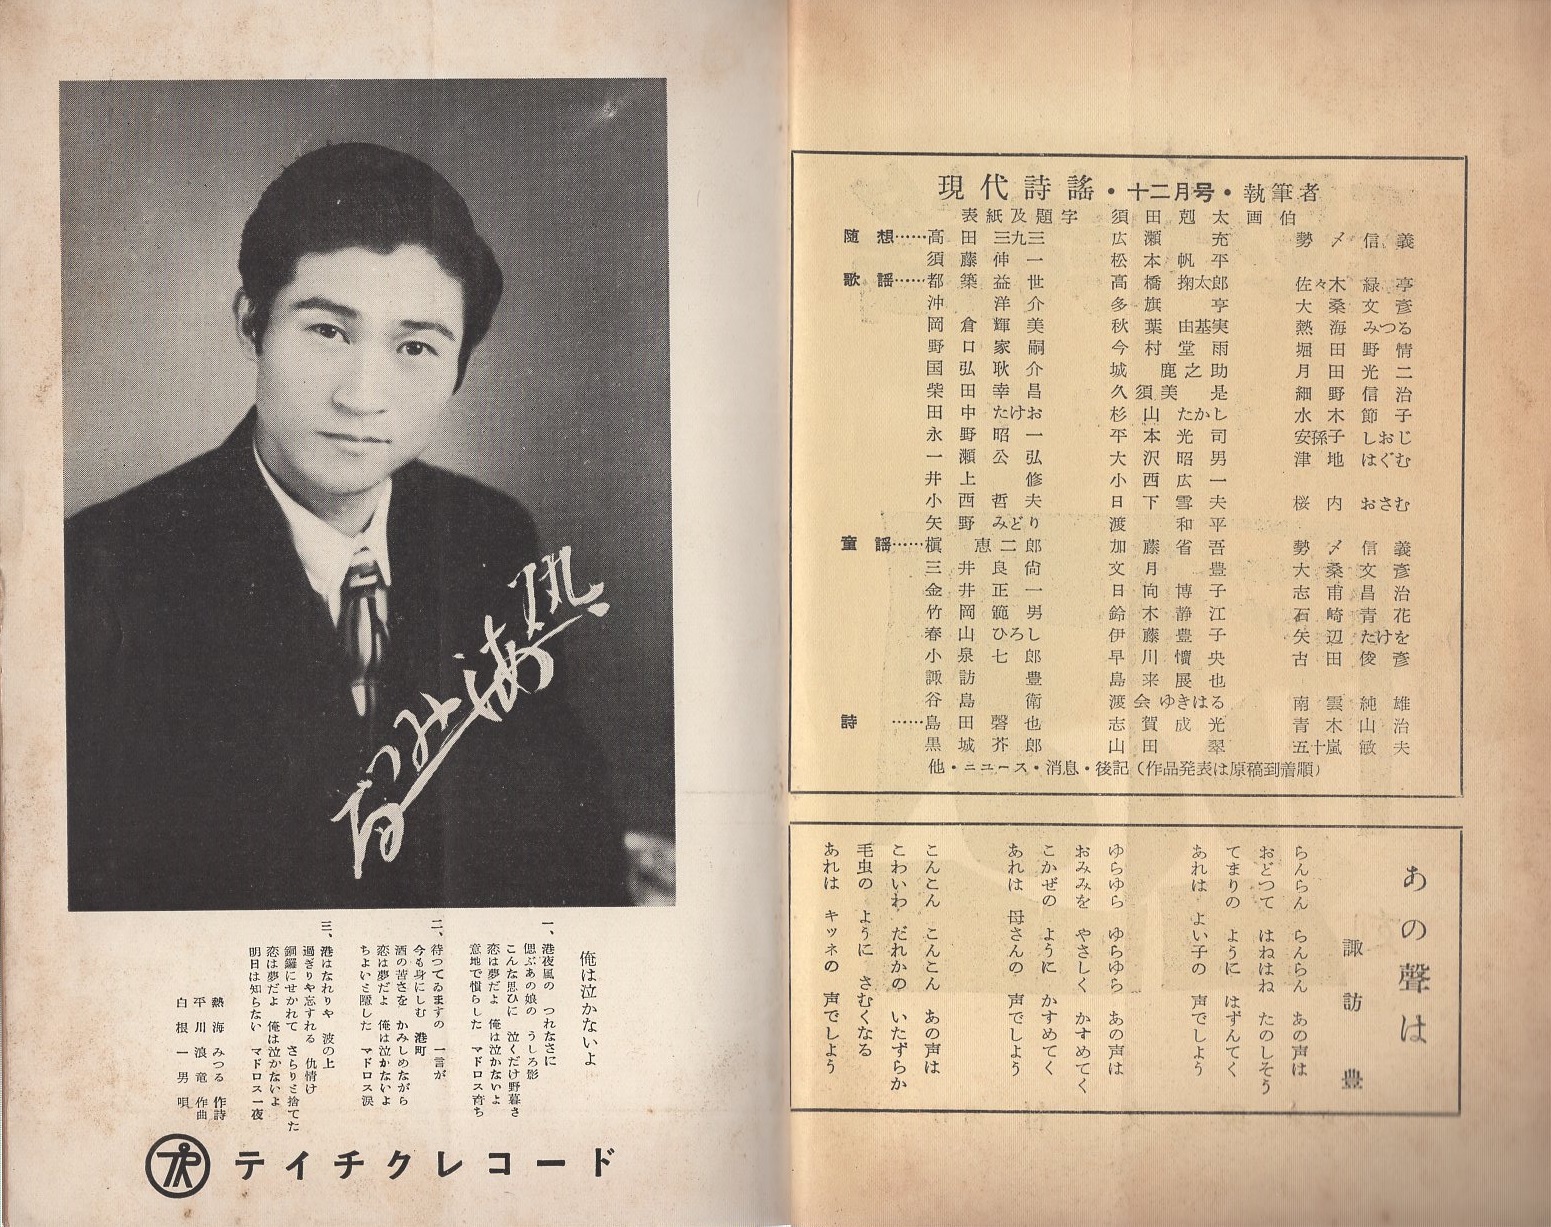 現代詩謠・十二月号・執筆者
表紙及題字 須田剋太画伯
随想……高田三九三 広瀬充 勢〆信義
須藤伸一 松本帆平
歌謡……都築益世 高橋掬太郎 佐々木緑亭
沖洋介 多旗亭 大桑文彦
岡倉輝美 秋葉由基実 熱海みつる
野口家嗣 今村堂雨 堀田野情
国弘耿介 城鹿之助 月田光二
柴田幸昌 久須美是 細野信治
田中たけお 杉山たかし 水木節子
永野昭一 平本光司 安孫子しおじ
一瀬公弘 大沢昭男 津地はぐむ
井上修 小西広一
小西哲夫 日下雪夫 桜内おさむ
矢野みどり 渡和平
童謡……槇恵二郎 加藤省吾 勢〆信義
三井良尙 文月豊 大桑文彦
金井正一 日向博子 志甫昌治
竹岡範男 鈴木静江 石崎青花
春山ひろし 伊藤豊子 矢辺たけを
小泉七郎 早川懭央 古田俊彦
諏訪豊 島来展也
谷島衛 渡会ゆきはる 南雲純雄
詩……島田磬也 志賀成光 青木山治
黒城芥郎 山田翠 五十嵐敏夫
他・ニユース・消息・後記(作品発表は原稿到着順)
あの聲は
諏訪豊
らんらん らんらん あの声は
おどつて はねはね たのしそう
てまりの ように はずんてく
あれは よい子の 声でしよう
ゆらゆら ゆらゆら あの声は
おみみを やさしく かすめてく
こかぜの ように かすめてく
あれは 母さんの 声でしよう
こんこん こんこん あの声は
こわいわ だれかの いたずらか
毛虫の ように さむくなる
あれは キツネの 声でしよう
熱海みつる
俺は泣かないよ
一、港夜風の つれなさに
偲ぶあの娘の うしろ影
こんな思ひに 泣くだけ野暮さ
恋は夢だよ 俺は泣かないよ
意地で慣らした マドロス育ち
二、待つてゐますの 一言が
今も身にしむ 港町
酒の苦さを かみしめながら
恋は夢だよ 俺は泣かないよ
ちよいと隠した マドロス涙
三、港はなれりや 波の上
過ぎりや忘すれる 仇情け
銅鑼にせかれて さらりと捨てた
恋は夢だよ 俺は泣かないよ
明日は知らない マドロス一夜
熱海みつる 作詩
平川浪竜 作曲
白根一男 唄
テイチクレコード